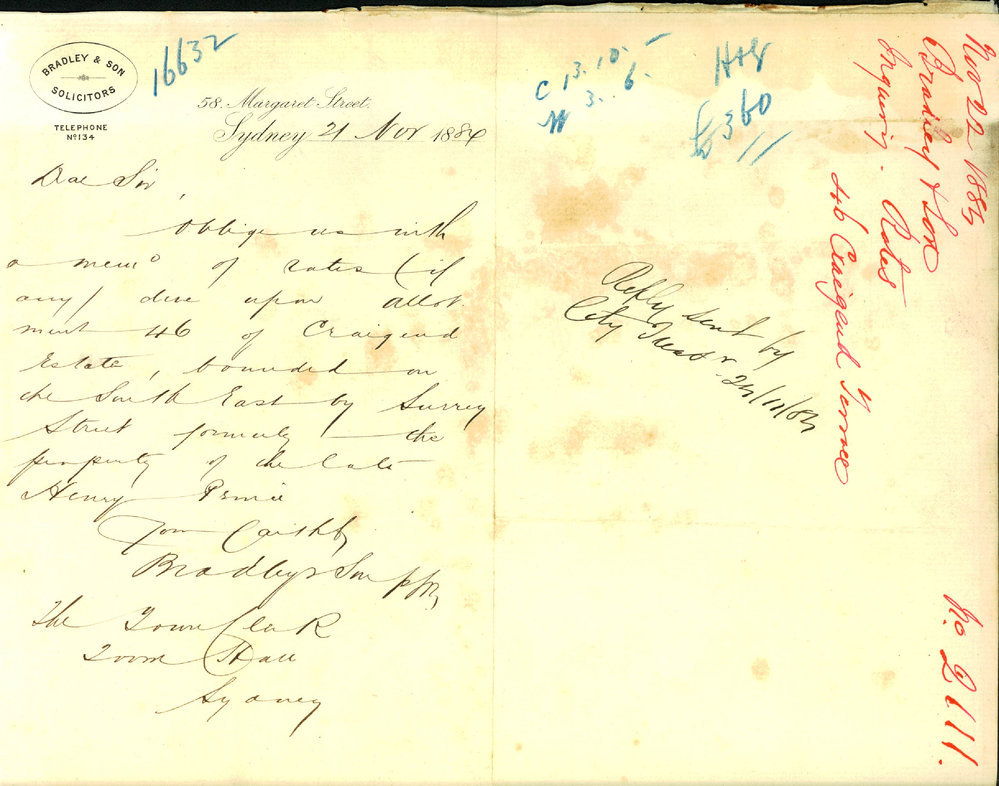 BRADLEY & SON
SOLICITORS
TELEPHONE
No 134
16632
58. Margaret Street,
Sydney 21 Nov 1884
Dear Sir
Oblige us with
a memo of rates (if
any) due upon allot
ment 46 of Craigend
Estate, bounded on
the South East by Surrey
Street formerly the
property of the late
Henry Prince
Yours faithfy
Bradley & Son
The Town Clerk
Town Hall
Sydney
C 13. 10. -
W 3. 6.
£360
Reply sent by
City Treasr
Nov 22 1884
Bradley & Son
Inquiry. Rates
46 Craigend Terrace
No 2111.